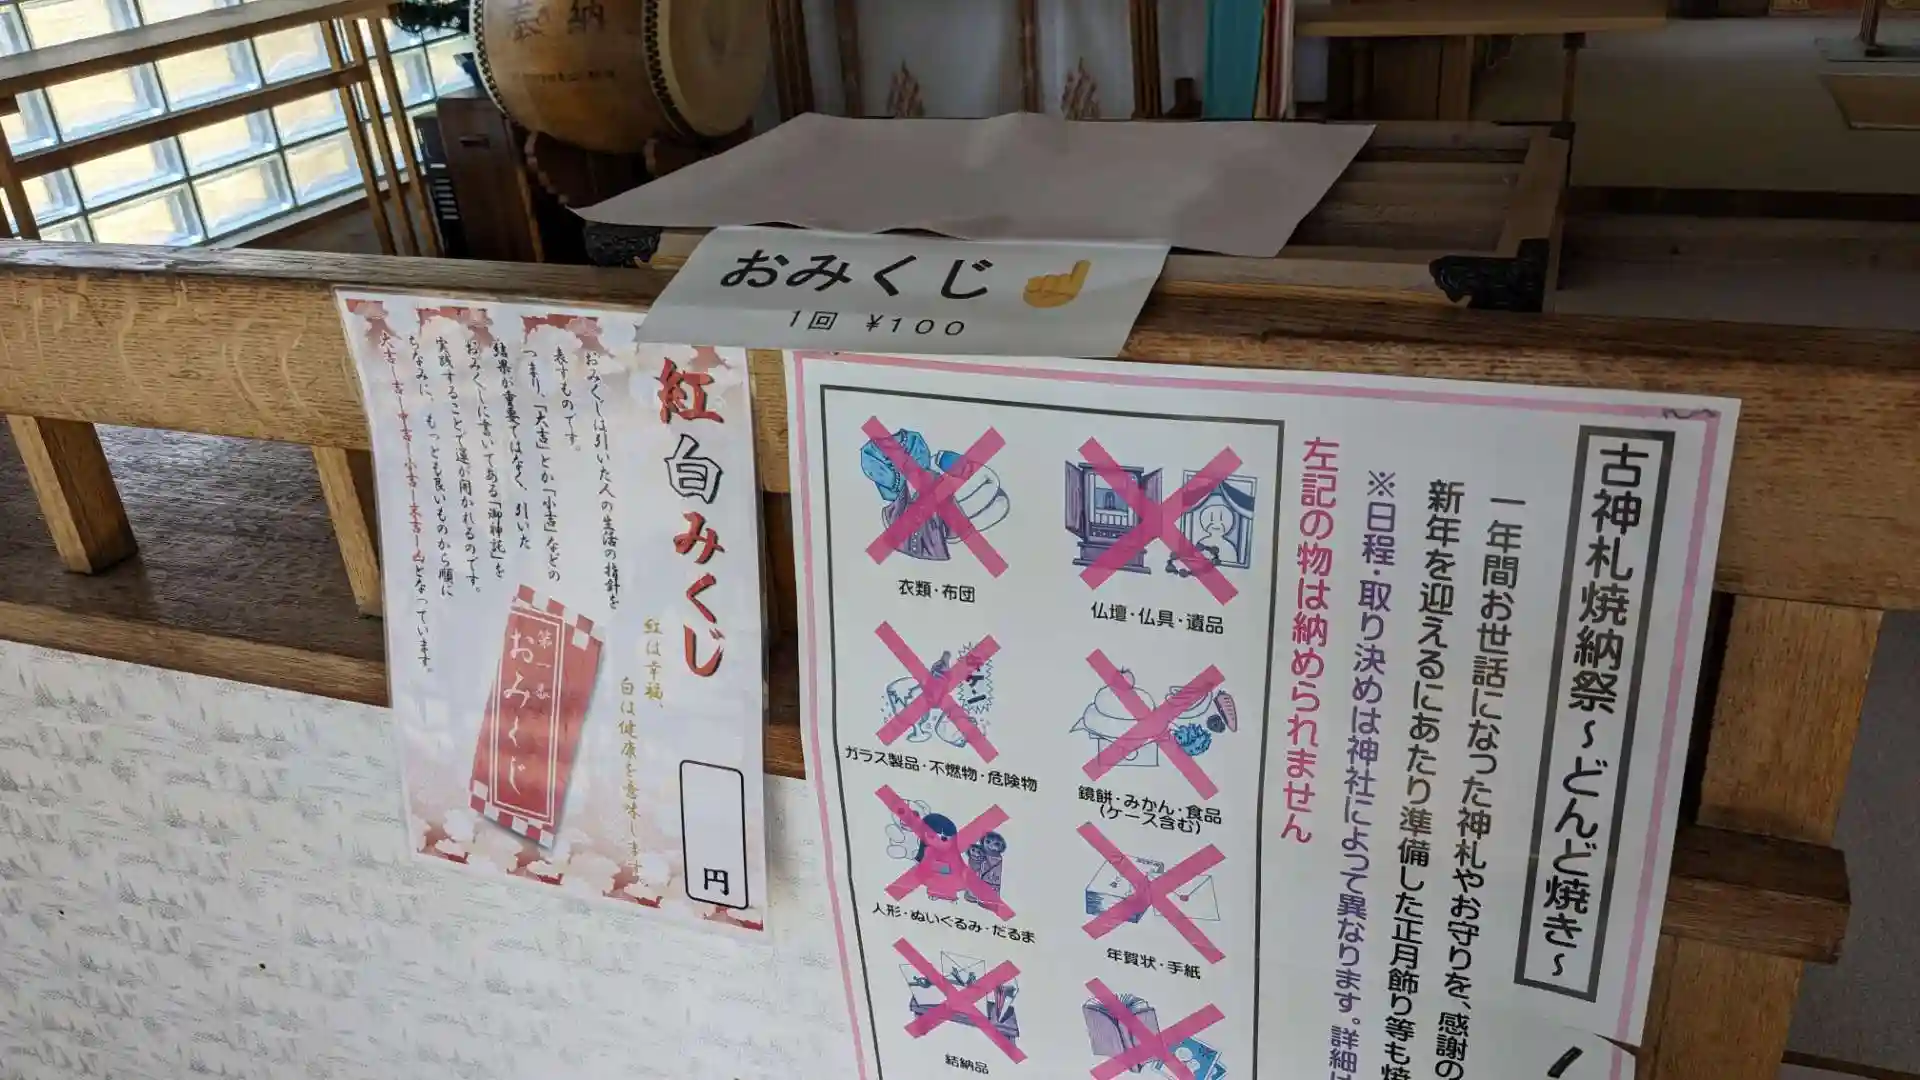 奉納
おみくじ
1回 ¥100
紅白みくじ
おみくじは引いた人の生活の指針を
表すものです。
つまり、「大吉」とか「小吉」などの
結果が重要ではなく、引いた
おみくじに書いてある「御神託」を
実践することで運が開かれるのです。
ちなみに、もっとも良いものから順に
大吉―吉―中吉―小吉―末吉―凶となっています。
紅は幸福、
白は健康を意味します。
第一番
おみくじ
円
古神札焼納祭～どんど焼き～
一年間お世話になった神札やお守りを、感謝の
新年を迎えるにあたり準備した正月飾り等も焼
※日程・取り決めは神社によって異なります。詳細は
左記の物は納められません
衣類・布団
仏壇・仏具・遺品
ガラス製品・不燃物・危険物
鏡餅・みかん・食品
(ケース含む)
人形・ぬいぐるみ・だるま
年賀状・手紙
結納品